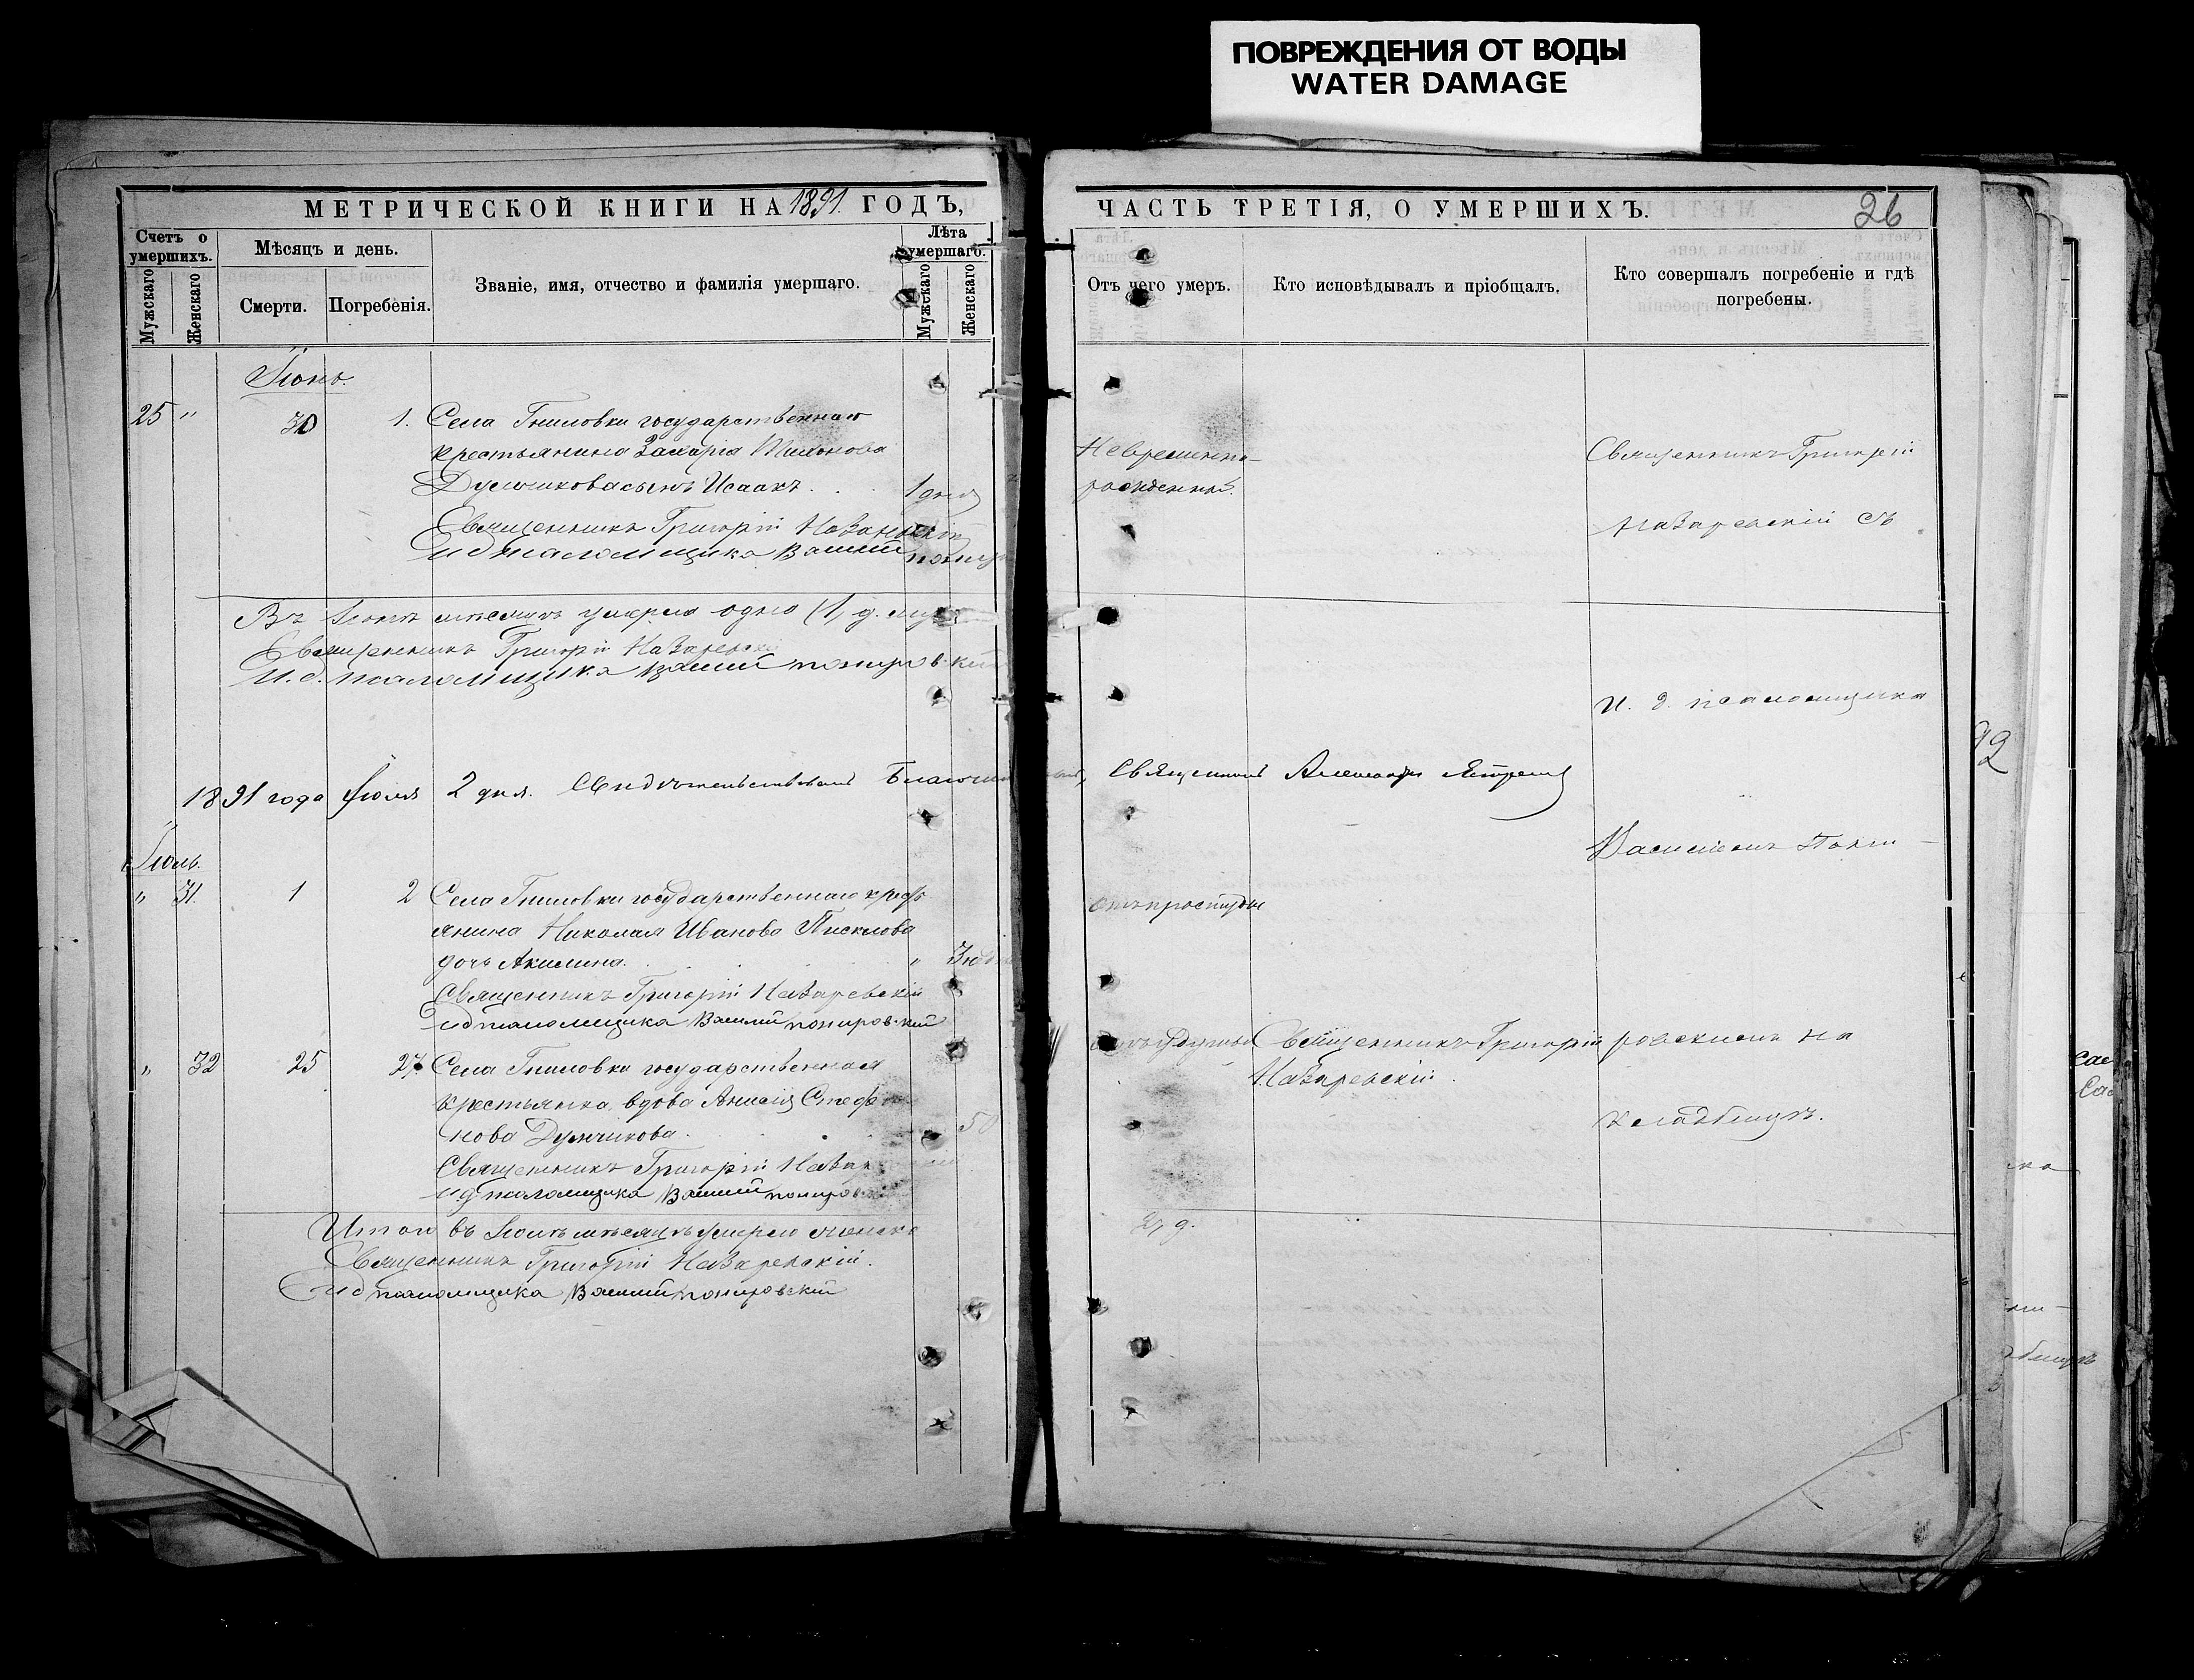 ПОВРЕЖДЕНИЯ ОТ ВОДЫ
WATER DAMAGE
МЕТРИЧЕСКОЙ КНИГИ НА 1891 ГОДЪ,
Счетъ о умершихъ.
Мужскаго
Женскаго
Мѣсяцъ и день.
Смерти.
Погребенія.
Званіе, имя, отчество и фамилія умершаго.
Лѣта умершаго.
Мужскаго
Женскаго
Іюнь.
25 " 30 1. Села Гниловки государственнаго
крестьянина Захарія Тихонова
сынъ Исаакъ . . 1 дня
Священникъ Григорій
И д псаломщика Василій
Въ Іюнѣ мѣсяцѣ умерло одно (1) д.
Священникъ Григорій Назаревскій
И. д. псаломщика Василій Покировскій
1891 года Іюля 2 дня. Свидѣтельствовалъ
Іюль.
" 31. 1 2 Села Гниловки государственнаго кресть
янина Николая Иванова Писклова
дочь Акилина. "
Священникъ Григорій Назаревскій
И д псаломщика Василій Покировскій
" 32 25 27 Села Гниловки государственная
крестьянка вдова Анисія Стефа
нова Думчикова. 50
Священникъ Григорій
И. д псаломщика Василій
Итого въ Іюлѣ мѣсяцѣ умерло женска
Священникъ Григорій Назаревскій.
И д псаломщика Василій Покировскій
ЧАСТЬ ТРЕТІЯ, О УМЕРШИХЪ.
26
Отъ чего умеръ.
Кто исповѣдывалъ и пріобщалъ.
Кто совершалъ погребеніе и гдѣ погребены.
Невременно-
рожденный.
Священникъ Григорій
Назаревскій съ
и. д. псаломщика
Священникъ Александръ
Василіемъ Поки-
Отъ простуды
Священникъ Григорій
Назаревскій.
ровскимъ на
кладбищѣ.
2, д.
92